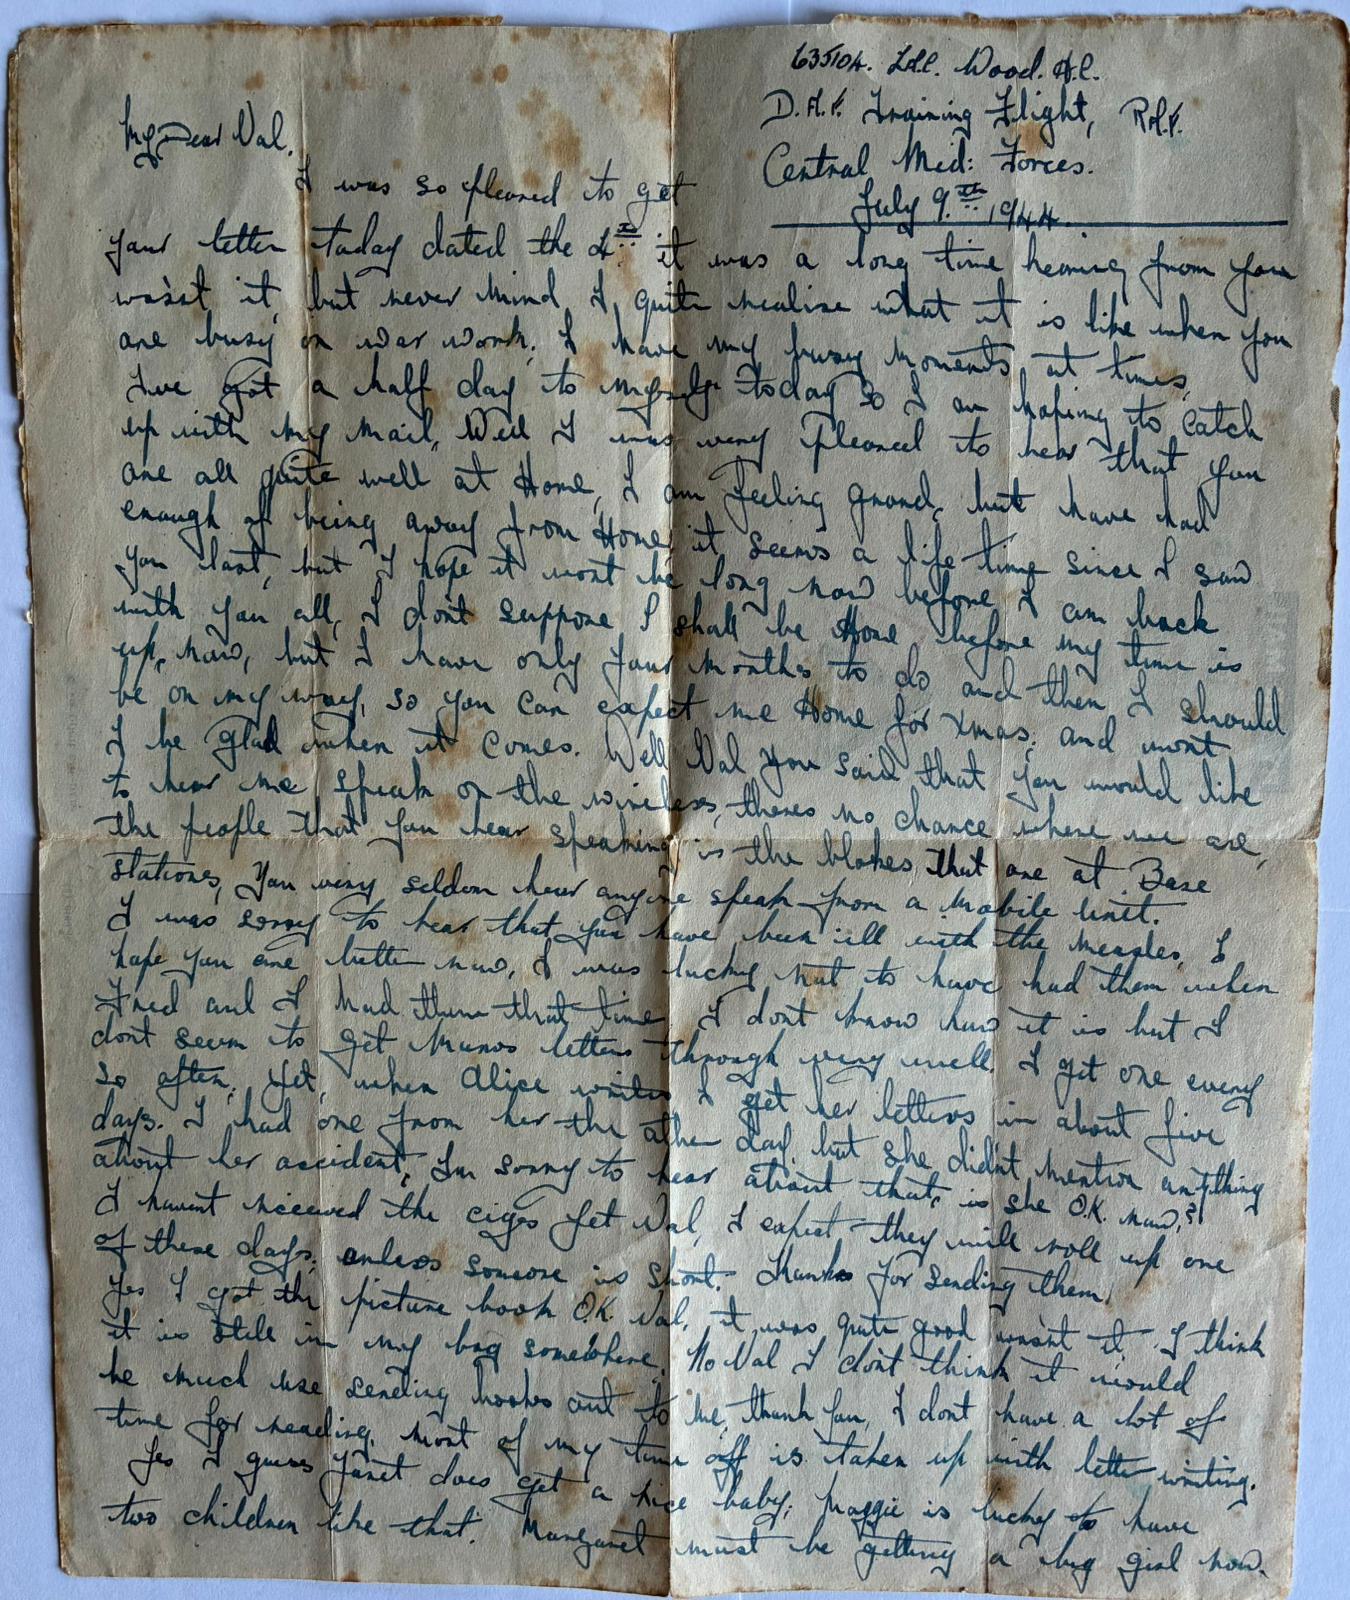 635104. L.A.C. Wood. A.C.
D.A.F. Training Flight, R.A.F.
Central Med: Forces.
July 9.th 1944.
My Dear Val.
I was so pleased to get
your letter today dated the 4th it was a long time hearing from you
was'nt it, but never mind, I quite realise what it is like when you
are busy on war work, I have my busy moments at times,
I've got a half day to myself today so I am hoping to catch
up with my mail, Well I was very pleased to hear that you
are all quite well at Home, I am feeling grand, but have had
enough of being away from Home, it seems a life time since I saw
you last, but I hope it wont be long now before I am back
with you all, I dont suppose I shall be Home before my time is
up, now, but I have only four months to do and then I should
be on my way, so you can expect me Home for Xmas, and wont
I be glad when it comes. Well Val you said that you would like
to hear me speak on the wireless, theres no chance where we are,
the people that you hear speaking is the blokes that are at Base
stations, you very seldom hear anyone speak from a mobile unit.
I was sorry to hear that you have been ill with the measles, I
hope you are better now, I was lucky not to have had them when
Fred and I had them that time I dont know how it is but I
dont seem to get Mums letters through very well, I get one every
so often, yet, when Alice writes I get her letters in about five
days. I had one from her the other day, but she didn't mention anything
about her accident, Im sorry to hear about that, is she O.K. now,?
I havent received the cigs yet Val, I expect they will roll up one
of these days, unless someone is short. Thanks for sending them,
Yes I got the picture book O.K. Val, it was quite good wasnt it, I think
it is still in my bag somewhere, No Val I don't think it would
be much use sending books out to me, thank you, I dont have a lot of
time for reading, most of my time off is taken up with letter writing.
Yes I guess Janet does get a nice baby, Maggie is lucky to have
two children like that. Margaret must be getting a big girl now.